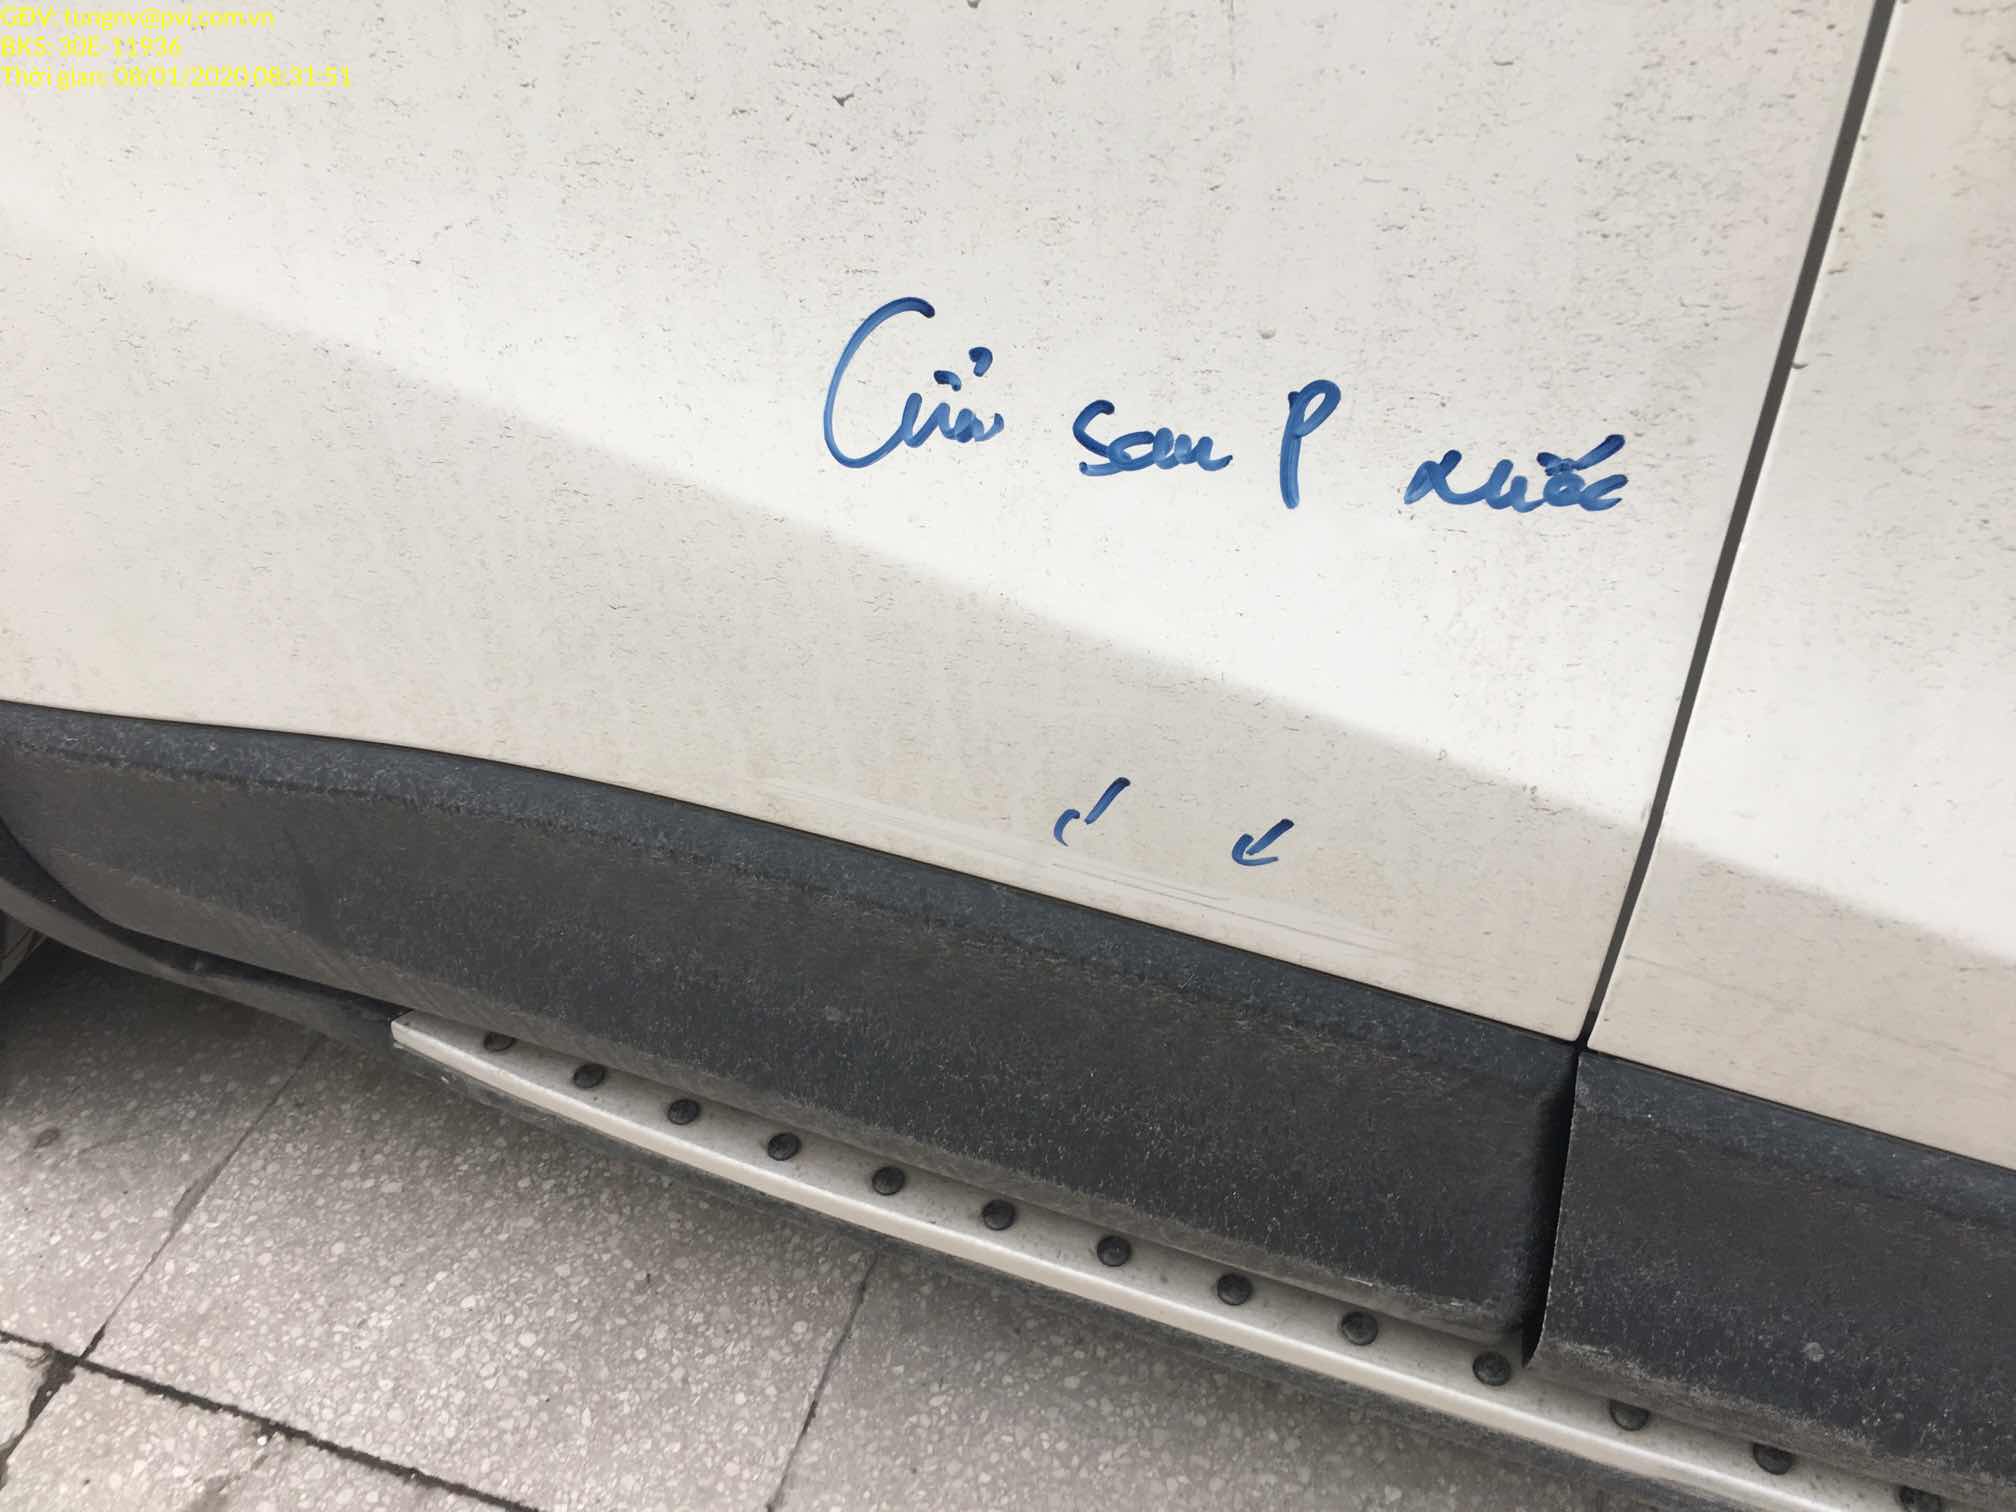 GĐV: tungnv@pvi.com.vn
BKS: 30E-11936
Thời gian: 08/01/2020 08:31:51
Cửa sau P xước